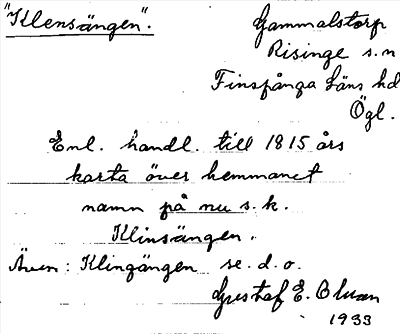 "Klensängen".
Gammalstorp
Risinge s:n
Finspånga läns hd
Ögl.
Enl. handl. till 1815 års
karta över hemmanet
namn på nu s.k.
Klinsängen.
Även: Klingängen se. d. o.
Gustaf E. Bluan
1933